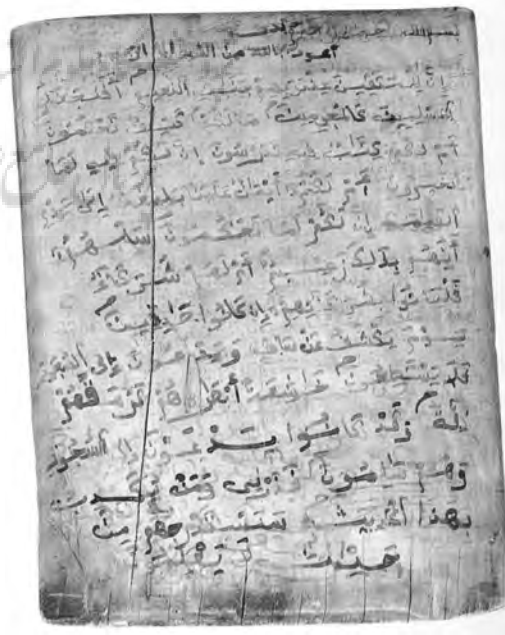 بسم الله
أعوذ بالله من الشيطان الرجيم
إن للمتقين عند ربهم جنت النعيم أفنجعل
المسلمين كالمجرمين ما لكم كيف تحكمون
أم لكم كتاب فيه تدرسون إن لكم فيه لما
تخيرون أم لكم أيمن علينا بلغة إلى يوم
القيمة إن لكم لما تحكمون سلهم
أيهم بذلك زعيم أم لهم شركاء
فليأتوا بشركائهم إن كانوا صدقين
يوم يكشف عن ساق ويدعون إلى السجود
فلا يستطيعون خشعة أبصرهم ترهقهم
ذلة وقد كانوا يدعون إلى السجود
وهم سلمون فذرني ومن يكذب
بهذا الحديث سنستدرجهم من
حيث